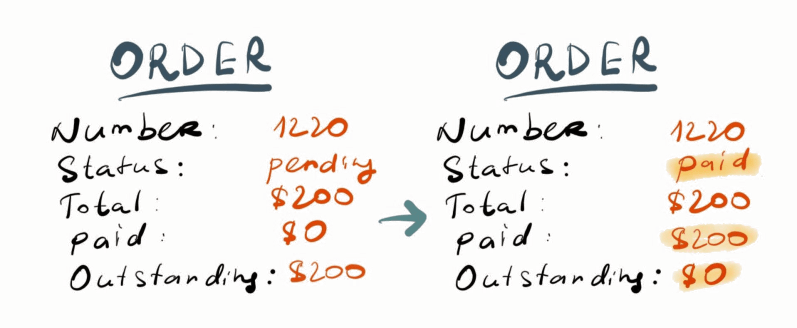 ORDER
Number: 1220
Status: pending
Total: $200
paid: $0
Outstanding: $200
ORDER
Number: 1220
Status: paid
Total: $200
paid: $200
Outstanding: $0